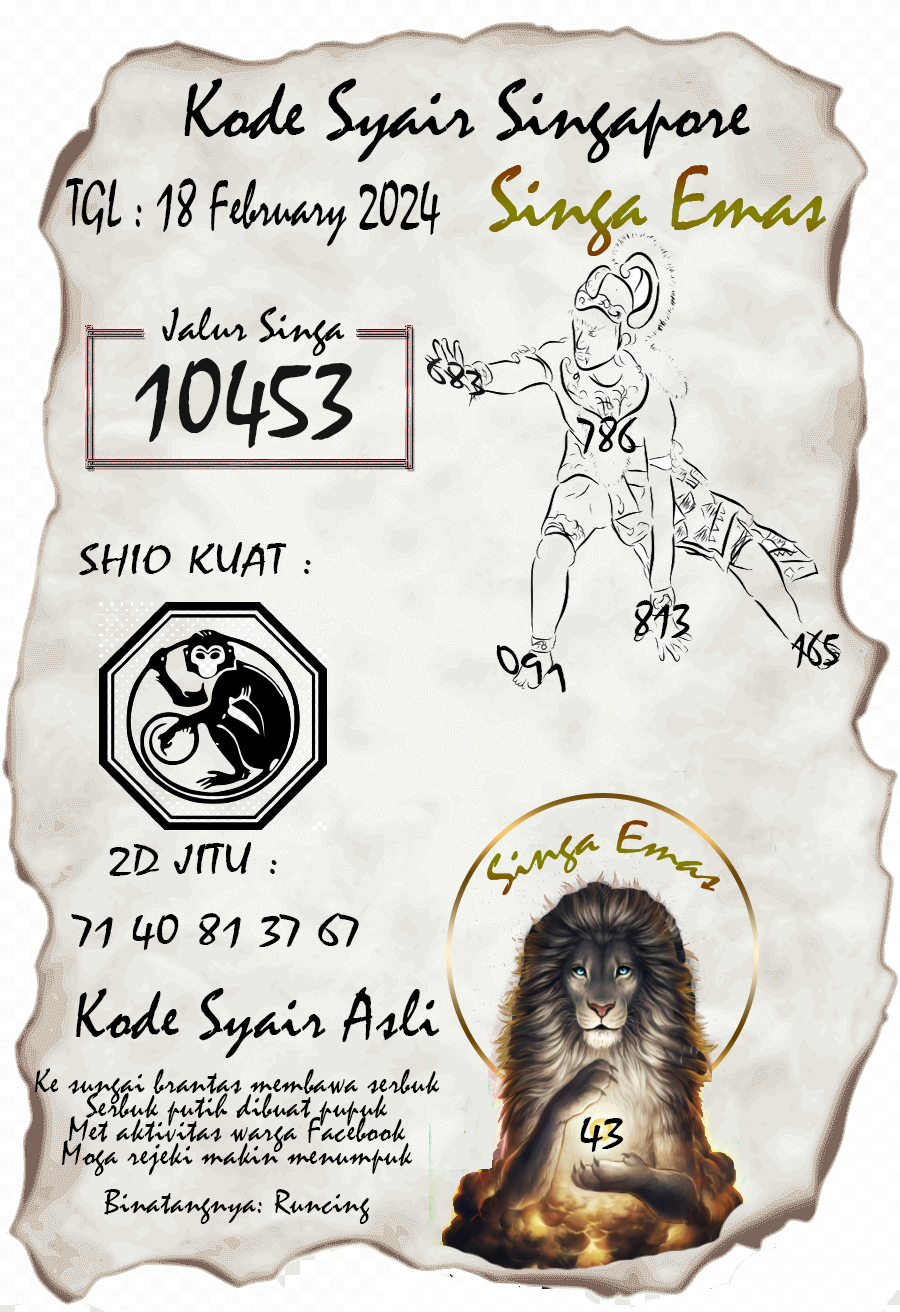 Kode Syair Singapore
TGL : 18 February 2024
Singa Emas
Jalur Singa
10453
683
786
SHIO KUAT :
813
091
165
2D JITU :
71 40 81 37 67
Kode Syair Asli
Ke sungai brantas membawa serbuk
Serbuk putih dibuat pupuk
Met aktivitas warga Facebook
Moga rejeki makin menumpuk
Binatangnya: Runcing
Singa Emas
43